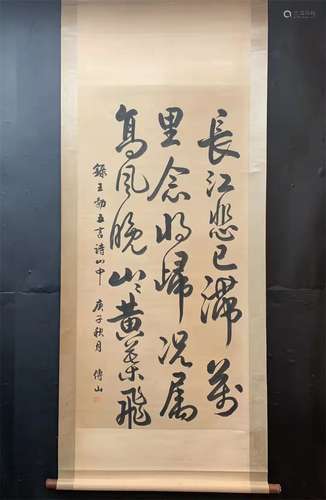 長江悲已滯萬
里念將歸况属
高風晚山〻黄葉飛
錄王勃五言詩山中 庚子秋月 傅山